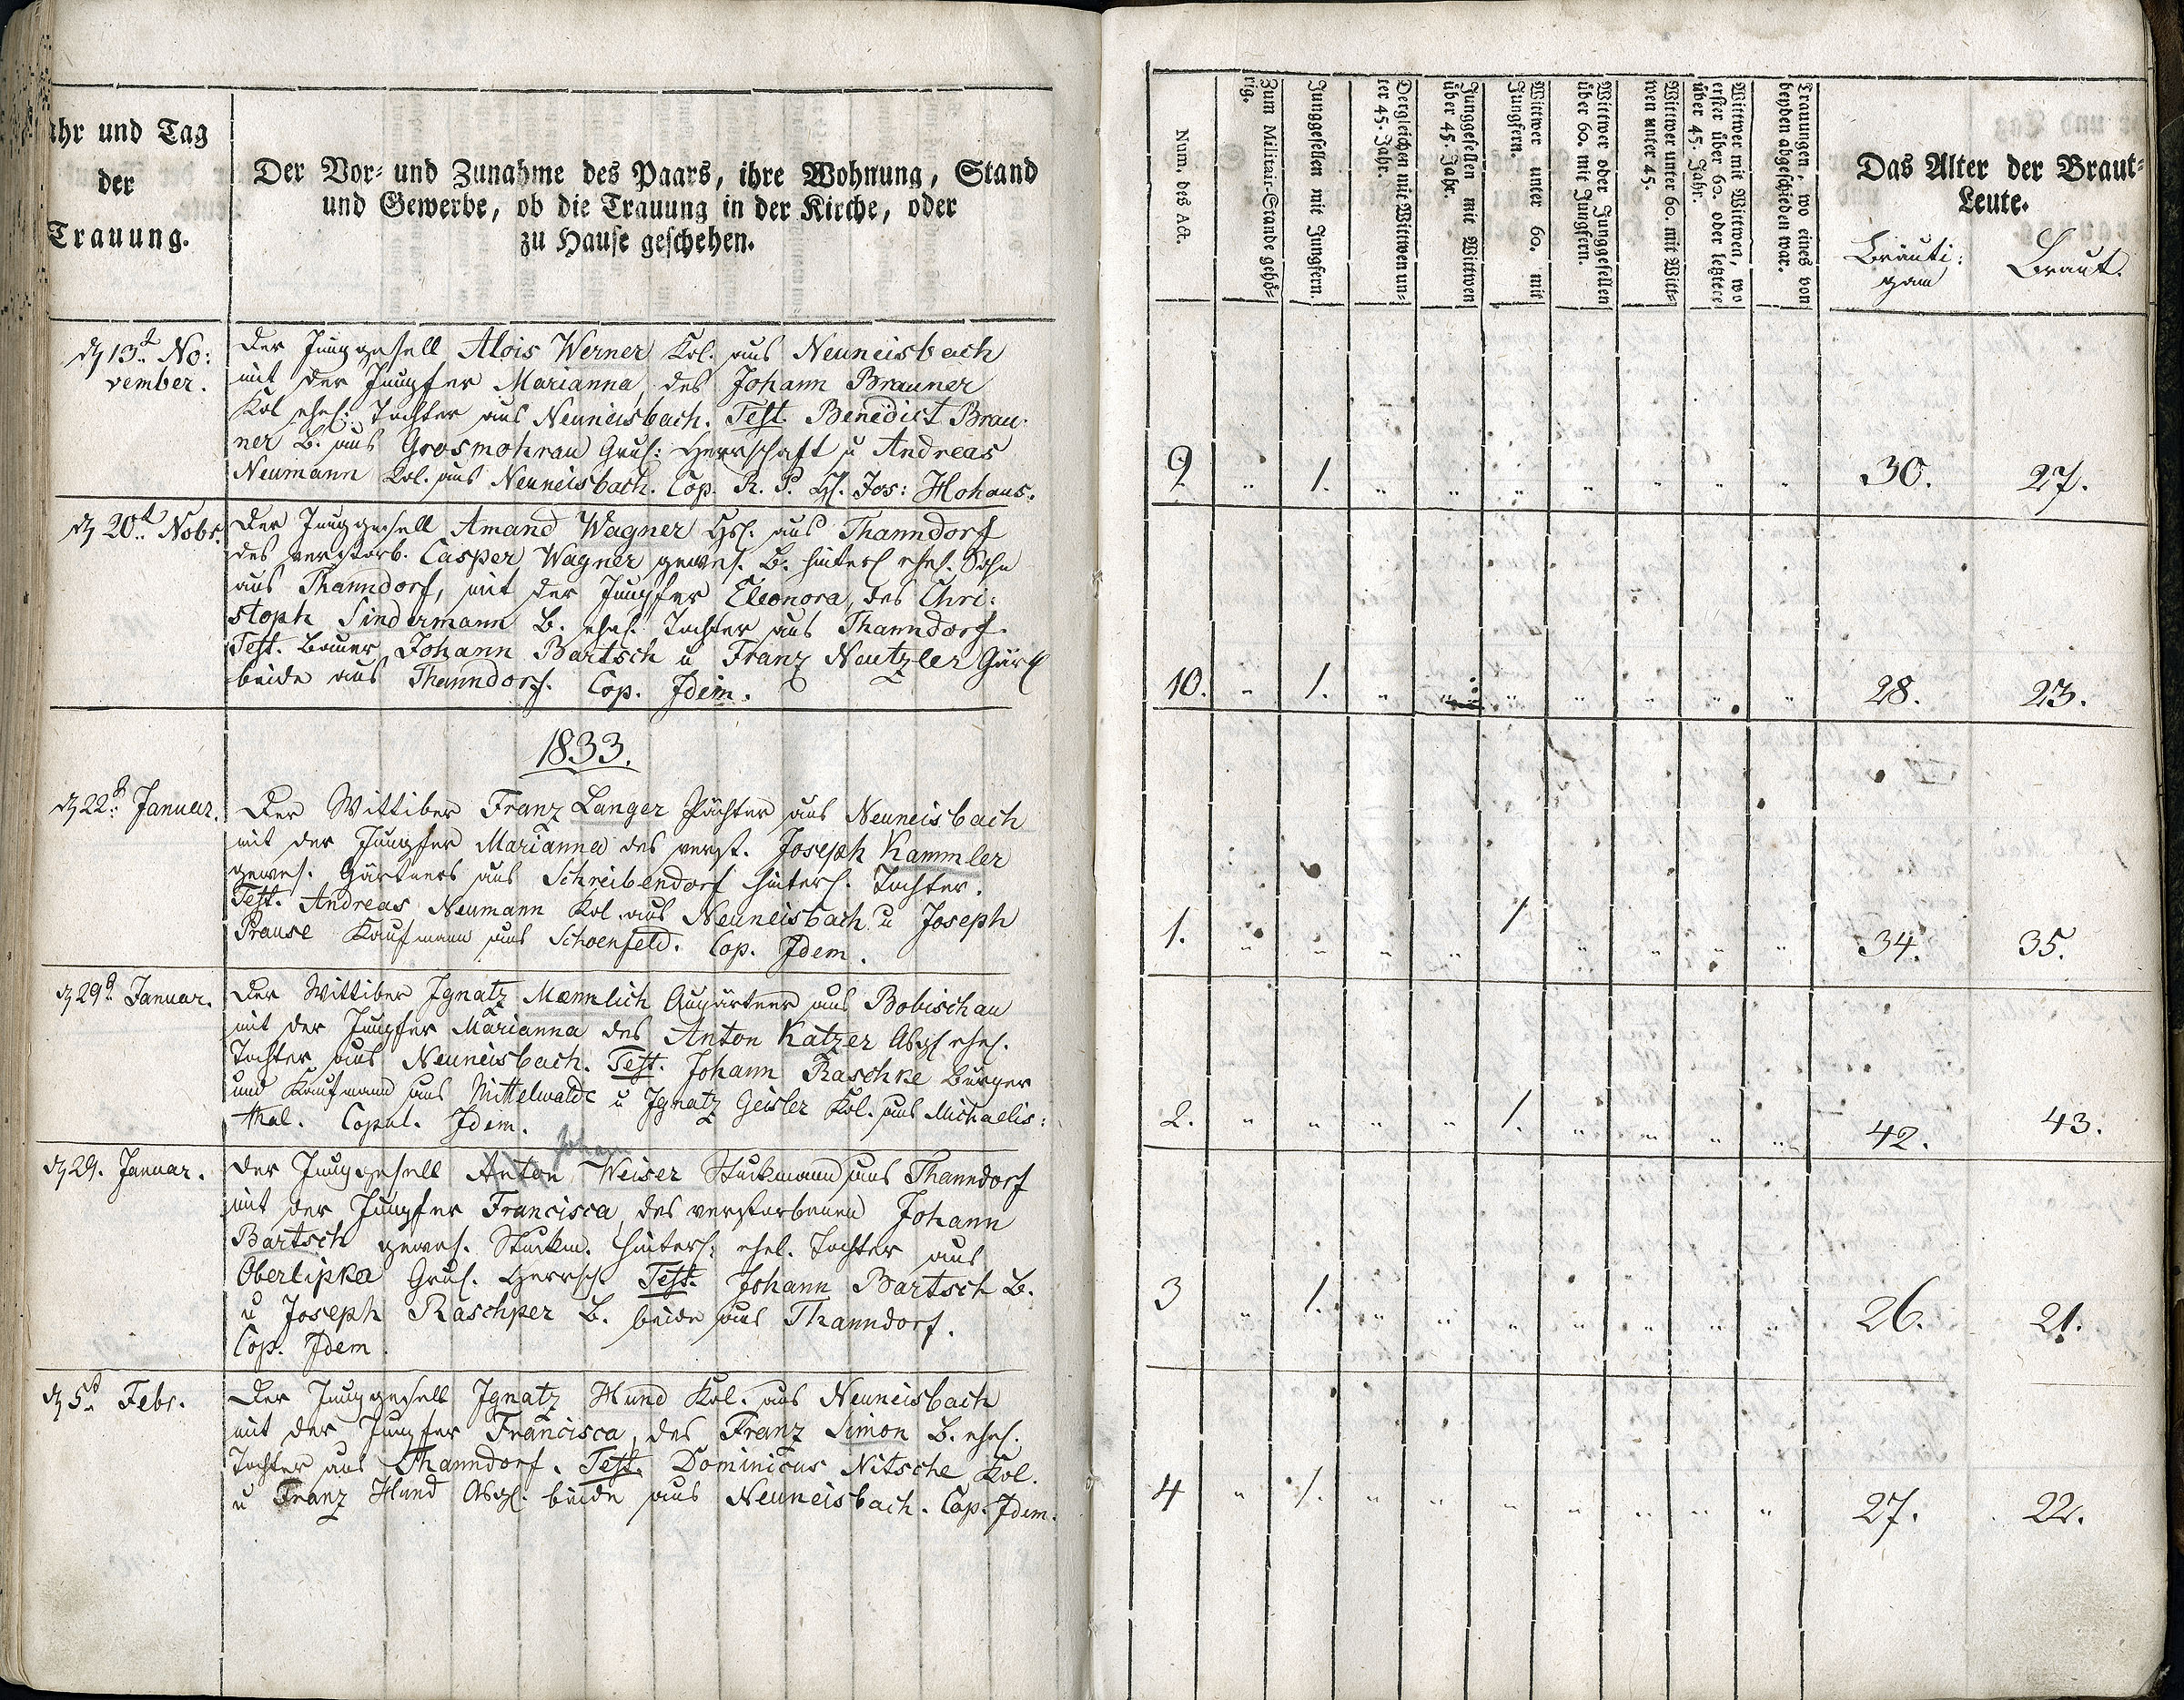 ahr und Tag
der
Trauung.
Der Vor- und Zunahme des Paars, ihre Wohnung, Stand
und Gewerbe, ob die Trauung in der Kirche, oder
zu Hause geschehen.
Num. des Act.
Zum Militair-Stande gehö-
rig.
Junggesellen mit Jungfern.
Dergleichen mit Wittwen un-
ter 45. Jahr.
Junggesellen mit Wittwen
über 45. Jahr.
Wittwer unter 60. mit
Jungfern.
Wittwer oder Junggesellen
über 60. mit Jungfern.
Wittwer unter 60. mit Witt-
wen unter 45.
Wittwer mit Wittwen, wo
erster über 60. oder letztere
über 45. Jahr.
Trauungen, wo eines von
beyden abgeschieden war.
Das Alter der Braut-
Leute.
Bräuti:
gam
Braut.
13t No:
vember.
Der Junggesell Alois Werner Kol. aus Neuneisbach
mit der Jungfer Marianna, des Johann Brauner
Kol ehel: Tochter aus Neuneisbach. Test. Benedict Brau-
ner B. aus Grosmohrau Grul: Herrschaft u Andreas
Neumann Kol. aus Neuneisbach. Cop. R. P. H. Jos: Hohaus.
9 " 1. " " " " " " " 30. 27.
20t Nobr.
Der Junggesell Amand Wagner aus Thanndorf
des verstorb. Casper Wagner gewes. B. hinterl ehel. Sohn
aus Thanndorf, mit der Jungfer Eleonora, des Chri:
stoph Sindermann B. ehel. Tochter aus Thanndorf.
Test. Bauer Johann Bartsch u Franz Neutzler Gärt
beide aus Thanndorf. Cop. Idem.
10. " 1. " " " " " " " 28. 23.
1833.
22t Januar.
Der Wittiber Franz Langer Pächter aus Neuneisbach
mit der Jungfer Marianna des verst. Joseph Kammler
gewes. Gärtners aus Schreibendorf hinterl. Tochter.
Test. Andreas Neumann Kol. aus Neuneisbach u Joseph
Prause Kaufmann aus Schoenfeld. Cop. Idem.
1. " " " " 1 " " " " 34. 35.
29t Januar.
Der Wittiber Ignatz Mænnlich Augärtner aus Bobischau
mit der Jungfer Marianna des Anton Katzer ehel.
Tochter aus Neuneisbach. Test. Johann Raschke Bürger
und Kaufmann aus Mittelwalde u Ignatz Geisler Kol. aus Michaelis:
thal. Copul. Idem.
2. " " " " 1. " " " " 42. 43.
29. Januar.
Johann
Der Junggesell Anton Weiser Stückmann aus Thanndorf
mit der Jungfer Francisca, des verstorbenen Johann
Bartsch gewes. Stückm. hinterl: ehel. Tochter aus
Oberlipka Grul. Herrsch. Test. Johann Bartsch B.
u Joseph Raschper B. beide aus Thanndorf.
Cop. Idem.
3 " 1. " " " " " " " 26. 21.
5t Febr.
Der Junggesell Ignatz Hund Kol. aus Neuneisbach
mit der Jungfer Francisca, des Franz Simon B. ehel.
Tochter aus Thanndorf. Test. Dominicus Nitsche Kol.
u Franz Hund beide aus Neuneisbach. Cop. Idem.
4 " 1. " " " " " " " 27. 22.